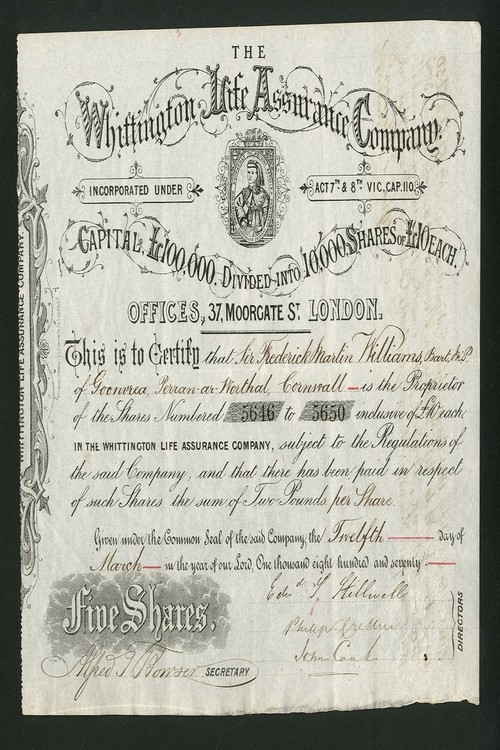 THE
Whittington Life Assurance Company.
INCORPORATED UNDER
ACT 7TH & 8TH VIC. CAP. 110.
CAPITAL £100,000. DIVIDED INTO 10,000 SHARES OF £10 EACH.
OFFICES, 37, MOORGATE ST. LONDON.
This is to Certify that Sir Frederick Martin Williams, Bart. M.P.
of Goonvrea, Perran-ar-Worthal, Cornwall — is the Proprietor
of the Shares Numbered 5646 to 5650 inclusive of £10 each
IN THE WHITTINGTON LIFE ASSURANCE COMPANY, subject to the Regulations of
the said Company, and that there has been paid in respect
of such Shares the sum of Two Pounds per Share.
Given under the Common Seal of the said Company, the Twelfth — day of
March — in the year of our Lord, One thousand eight hundred and seventy. —
Five Shares.
DIRECTORS
Alfred T. Bowser SECRETARY
WHITTINGTON LIFE ASSURANCE COMPANY